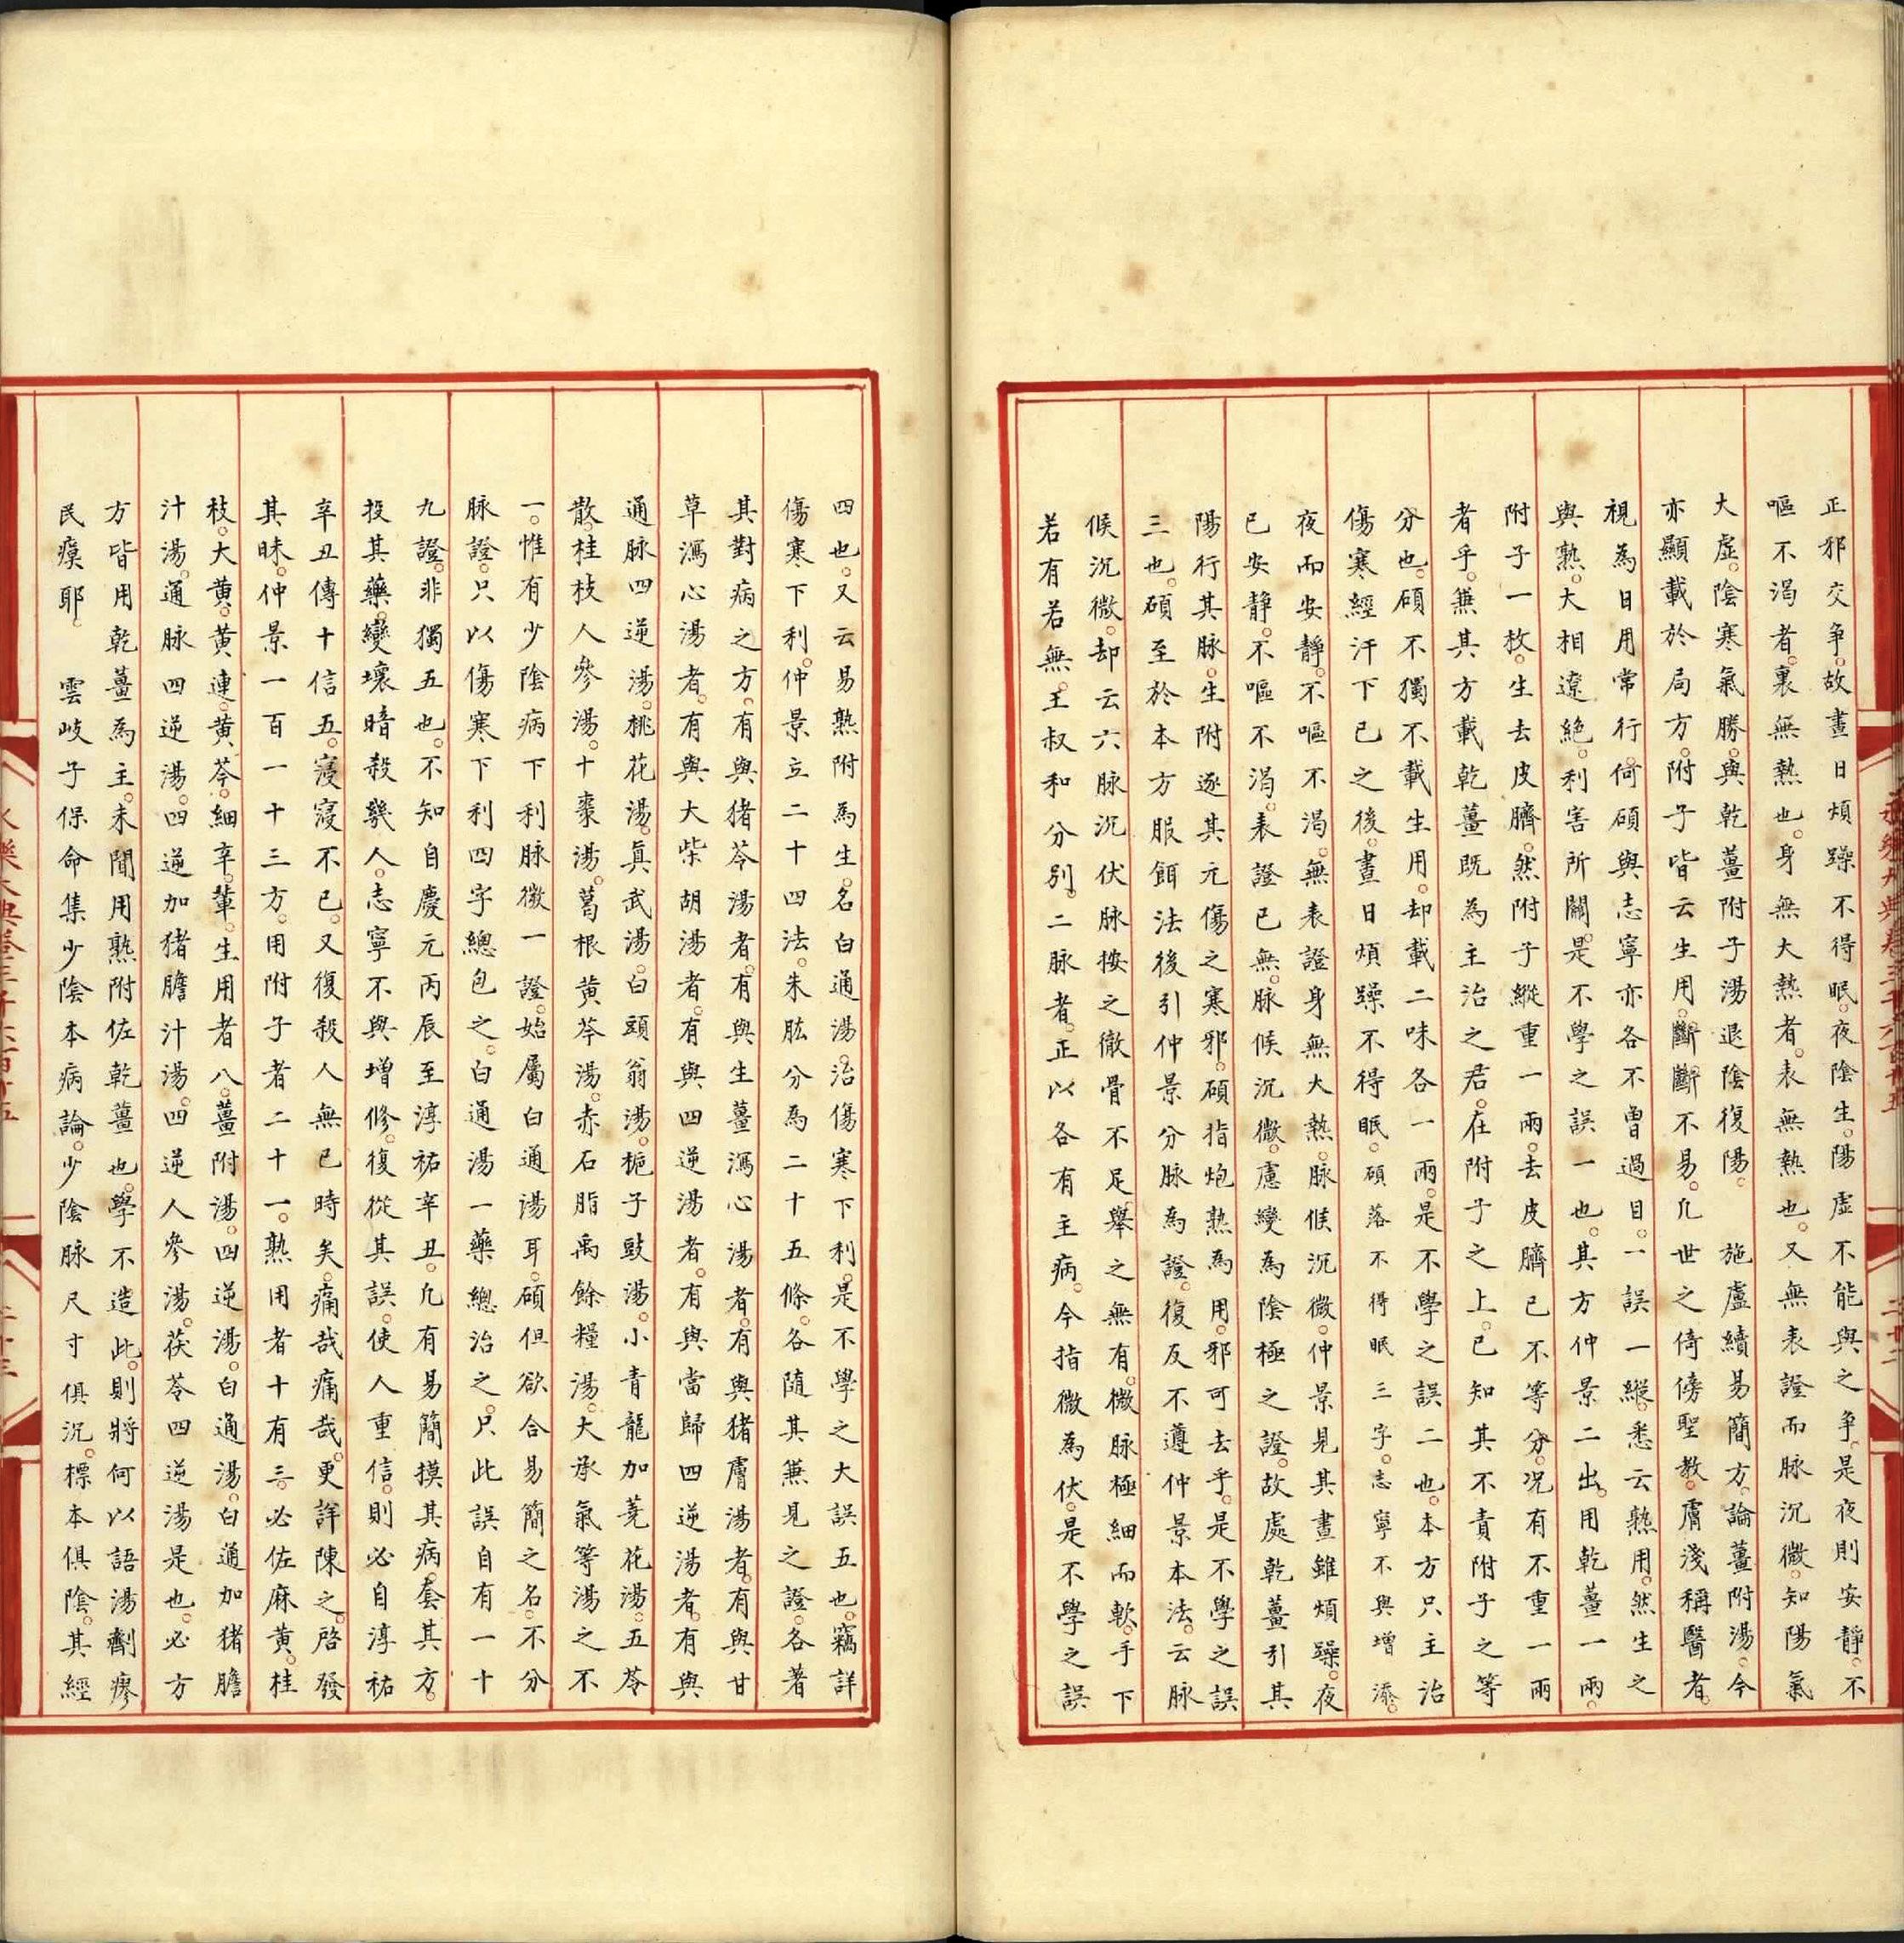 正邪交争。故晝日煩躁不得眠。夜陰生。陽虛不能與之争。是夜則安靜。不
嘔不渴者。裏無熱也。身無大熱者。表無熱也。又無表證而脉沉微。知陽氣
大虛。陰寒氣勝。與乾薑附子湯退陰復陽。 施盧續易簡方。論薑附湯。今
亦顯載於局方。附子皆云生用。斷斷不易。凢世之倚傍聖教。膚淺稱醫者。
視為日用常行。何碩與志寧亦各不曾過目。一誤一縱。悉云熟用。然生之
與熟。大相遼絶。利害所關。是不學之誤一也。其方仲景二出。用乾薑一兩。
附子一枚。生去皮臍。然附子縱重一兩。去皮臍已不等分。况有不重一兩
者乎。兼其方載乾薑既為主治之君。在附子之上。已知其不責附子之等
分也。碩不獨不載生用。却載二味各一兩。是不學之誤二也。本方只主治
傷寒經汗下已之後。晝日煩躁不得眠。碩落不得眠三字。志寧不與增添。
夜而安靜。不嘔不渴。無表證身無大熱。脉候沉微。仲景見其晝雖煩躁。夜
已安靜。不嘔不渴。表證已無。脉候沉微。慮變為陰極之證。故處乾薑引其
陽行其脉。生附逐其元傷之寒邪。碩指炮熟為用。邪可去乎。是不學之誤
三也。碩至於本方服餌法後引仲景分脉為證。復反不遵仲景本法。云脉
候沉微。却云六脉沉伏脉按之徹骨不足。舉之無有。微脉極細而軟。手下
若有若無。王叔和分别。二脉者。正以各有主病。今指微為伏。是不學之誤
四也。又云易熟附為生。名白通湯。治傷寒下利。是不學之大誤五也。竊詳
傷寒下利。仲景立二十四法。朱肱分為二十五條。各隨其兼見之證。各著
其對病之方。有與猪苓湯者。有與生薑瀉心湯者。有與猪膚湯者。有與甘
草瀉心湯者。有與大柴胡湯者。有與四逆湯者。有與當歸四逆湯者。有與
通脉四逆湯。桃花湯。真武湯。白頭翁湯。梔子豉湯。小青龍加蕘花湯。五苓
散。桂枝人參湯。十棗湯。葛根黄芩湯。赤石脂禹餘糧湯。大承氣等湯之不
一。惟有少陰病下利脉微一證。始屬白通湯耳。碩但欲合易簡之名。不分
脉證。只以傷寒下利四字總包之。白通湯一藥總治之。只此誤自有一十
九證。非獨五也。不知自慶元丙辰至淳祐辛丑。凢有易簡摸其病。套其方。
投其藥。變壞暗殺幾人。志寧不與增修。復從其誤。使人重信。則必自淳祐
辛丑傳十信五。寖寖不已。又復殺人無已時矣。痛哉痛哉。更詳陳之。啓發
其昧。仲景一百一十三方。用附子者二十一。熟用者十有三。必佐麻黄。桂
枝。大黄。黄連。黄芩。細辛。輩。生用者八。薑附湯。四逆湯。白通湯。白通加猪膽
汁湯。通脉四逆湯。四逆加猪膽汁湯。四逆人參湯。茯苓四逆湯是也。必方
方皆用乾薑為主。未聞用熟附佐乾薑也。學不造此。則將何以語湯劑瘳
民瘼耶。 雲岐子保命集少陰本病論。少陰脉尺寸俱沉。標本俱陰。其經